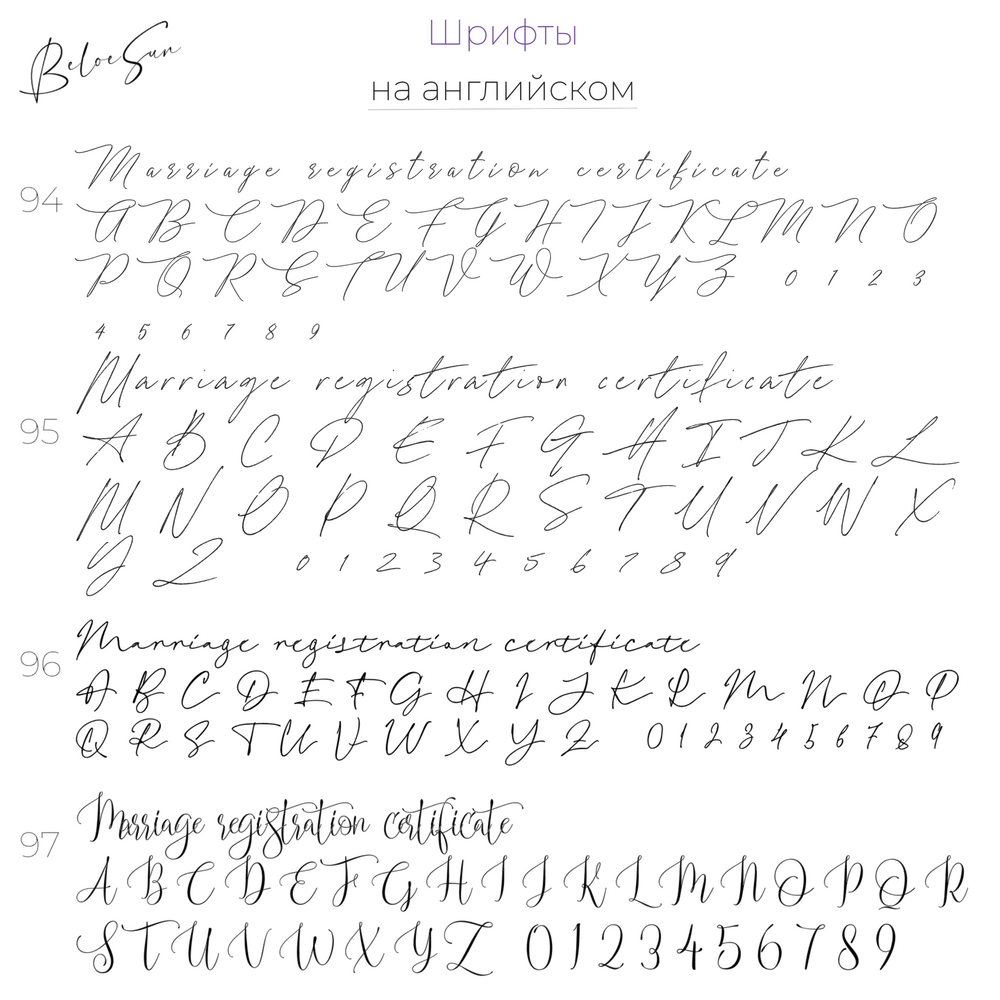 BeloeSun
Шрифты
на английском
94
Marriage registration certificate
A B C D E F G H I J K L M N O
P Q R S T U V W X Y Z 0 1 2 3
4 5 6 7 8 9
95
Marriage registration certificate
A B C D E F G H I J K L
M N O P Q R S T U V W X
Y Z 0 1 2 3 4 5 6 7 8 9
96
Marriage registration certificate
A B C D E F G H I J K L M N O P
Q R S T U V W X Y Z 0 1 2 3 4 5 6 7 8 9
97
Marriage registration certificate
A B C D E F G H I J K L M N O P Q R
S T U V W X Y Z 0 1 2 3 4 5 6 7 8 9